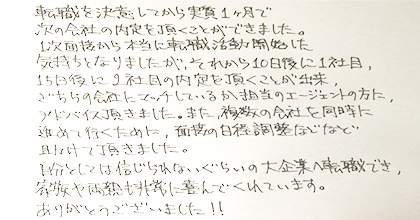 転職を決意してから実質1ヶ月で
次の会社の内定を頂くことができました。
1次面接から本当に転職活動開始した
気持ちとなりましたが、それから10日後に1社目、
15日後に2社目の内定を頂くことが出来、
どちらの会社にマッチしているか担当のエージェントの方に、
アドバイス頂きました。また、複数の会社を同時に
進めて行くために、面接の日程調整などなど
助けて頂きました。
自分としては信じられないぐらいの大企業へ転職でき、
家族や両親も非常に喜んでくれています。
ありがとうございました!!